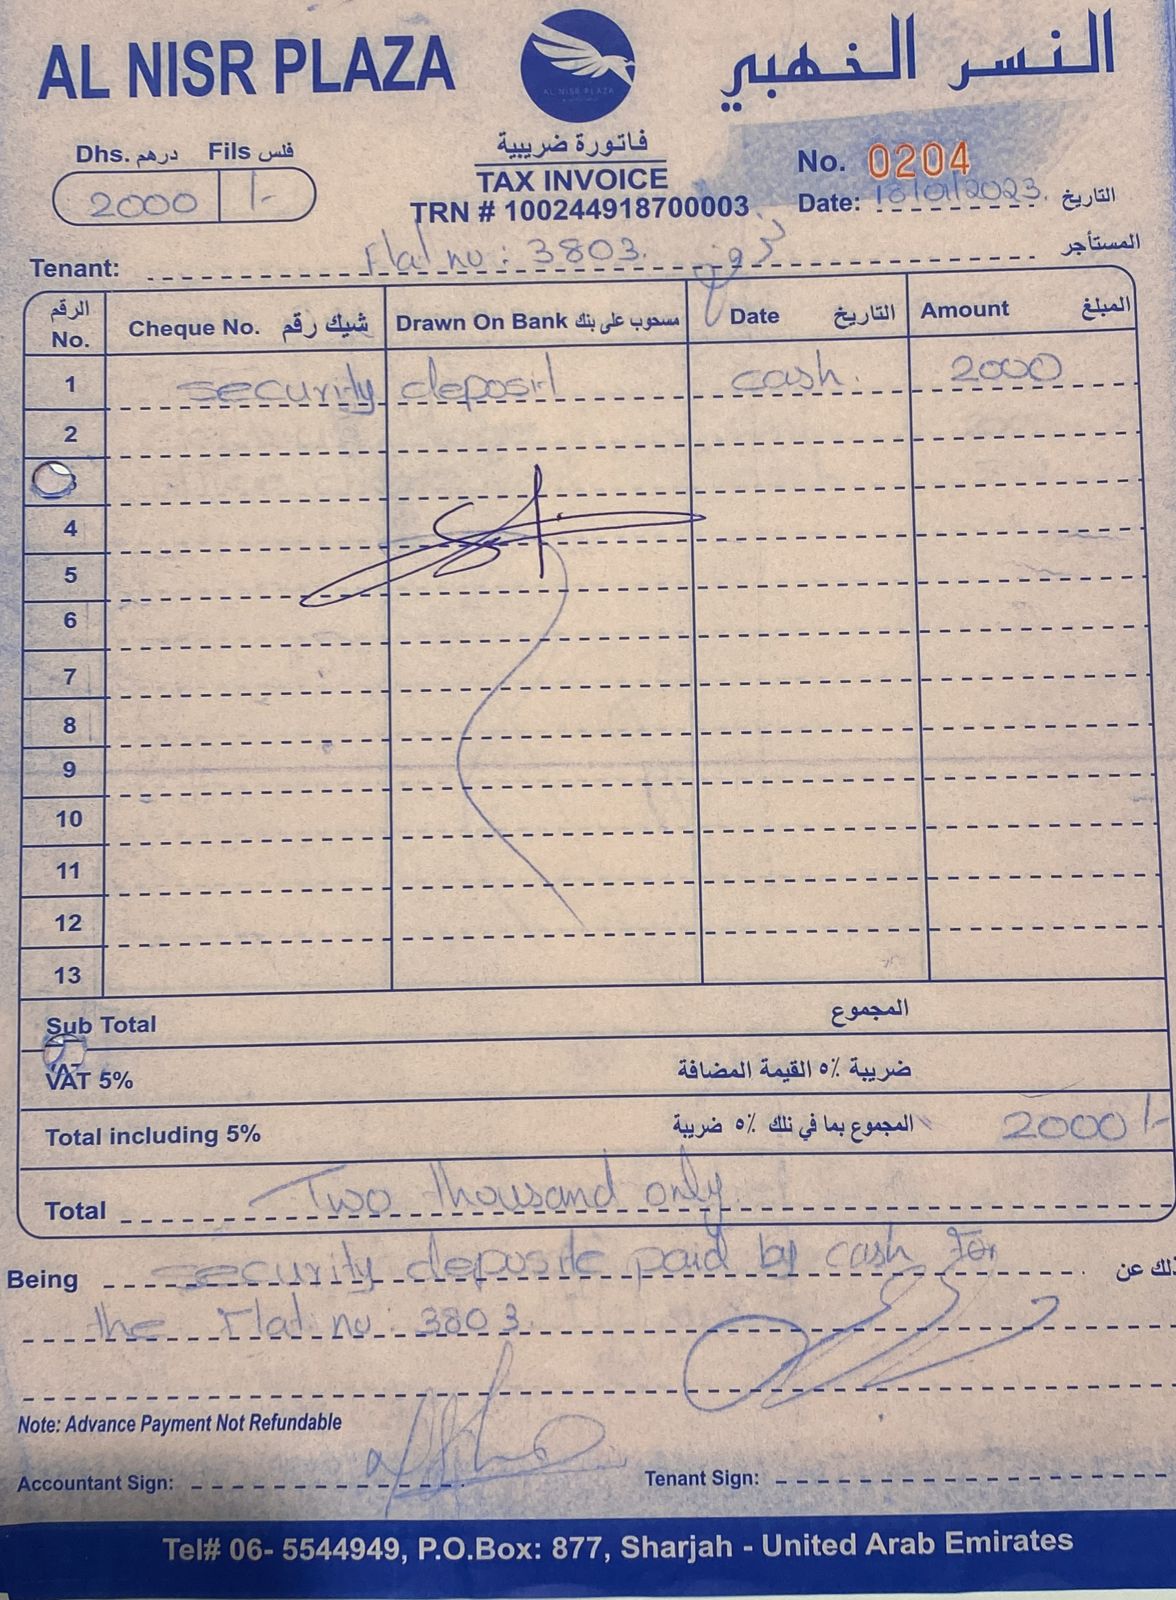 AL NISR PLAZA
النسر الذهبي
AL NISR PLAZA
Dhs. درهم Fils فلس
2000 /-
فاتورة ضريبية
TAX INVOICE
TRN # 100244918700003
No. 0204
Date: /01/2023. التاريخ
Tenant: Flat no: 3803. المستأجر
الرقم No. Cheque No. شيك رقم Drawn On Bank مسحوب على بنك Date التاريخ Amount المبلغ
1 security deposit cash. 2000
2
4
5
6
7
8
9
10
11
12
13
Sub Total المجموع
VAT 5% ضريبة ٥٪ القيمة المضافة
Total including 5% المجموع بما في ذلك ٥٪ ضريبة 2000/-
Total Two thousand only.
Being security deposite paid by cash for ذلك عن
the Flat no: 3803.
Note: Advance Payment Not Refundable
Accountant Sign: Tenant Sign:
Tel# 06- 5544949, P.O.Box: 877, Sharjah - United Arab Emirates